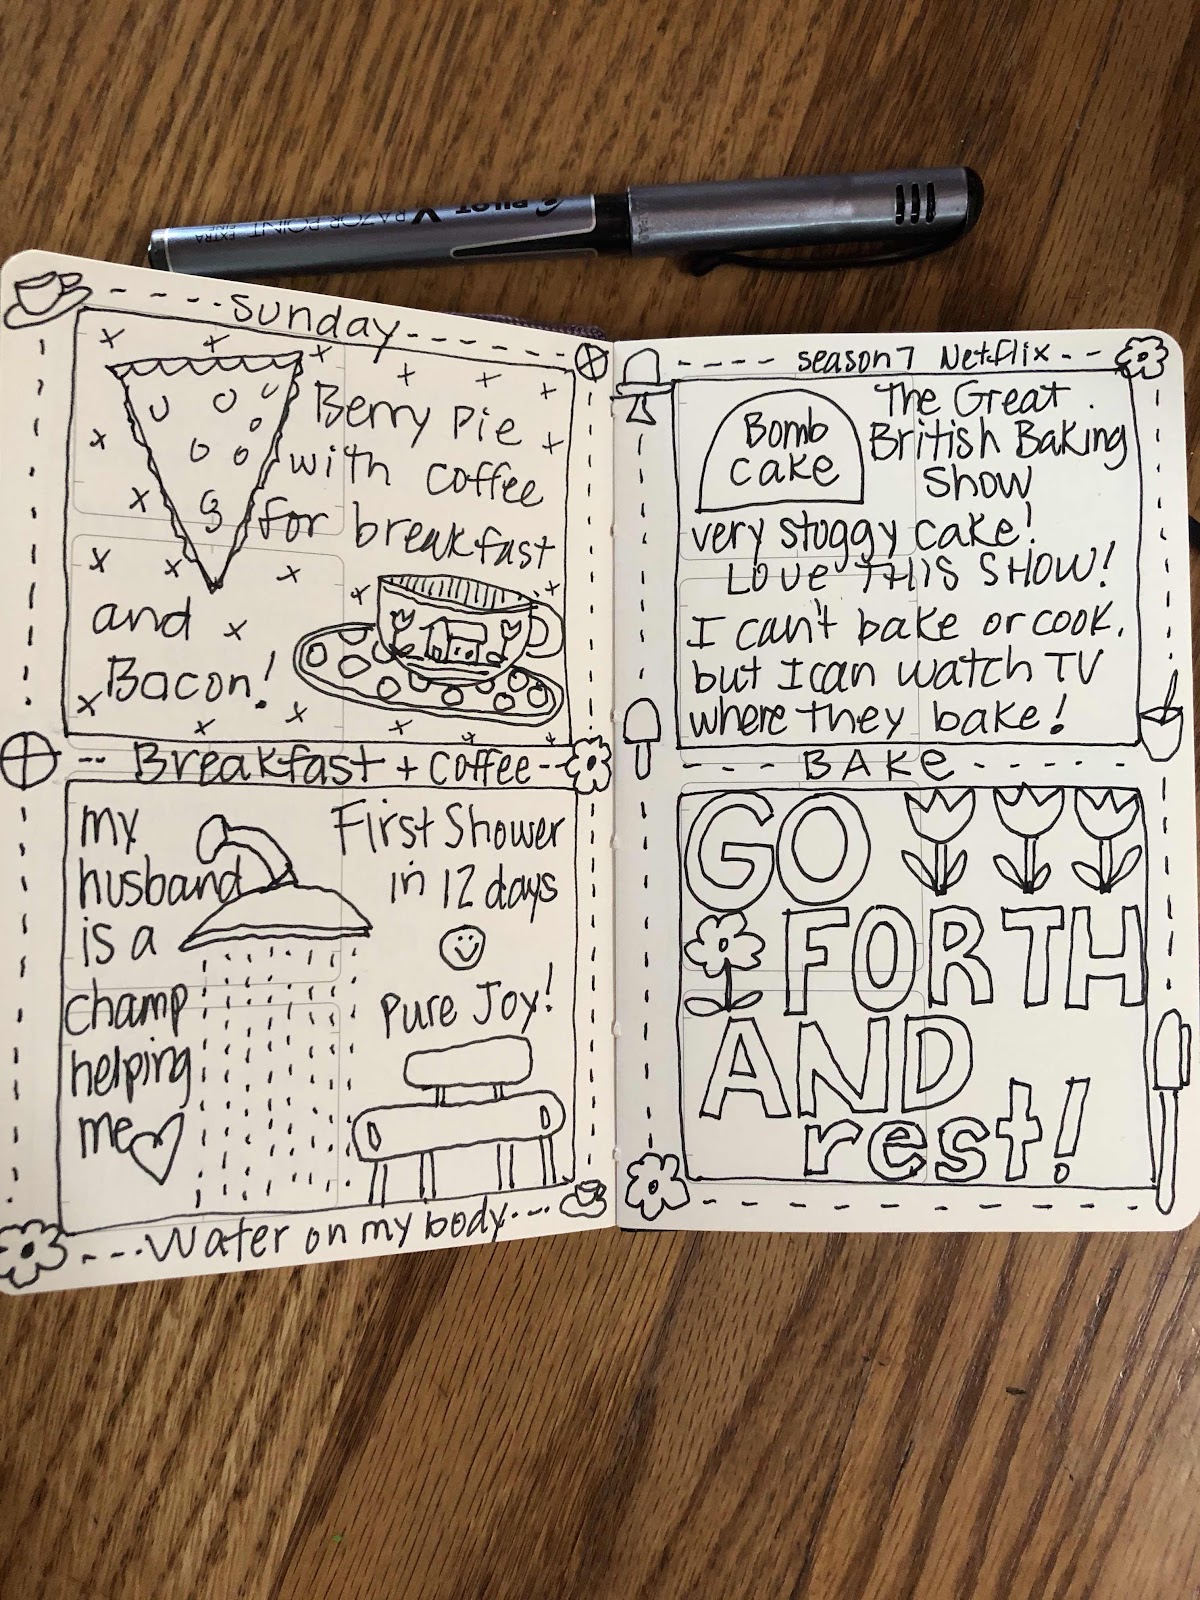 PILOT
V RAZOR POINT EXTRA
Sunday
Berry Pie
with coffee
for breakfast
and
Bacon!
Breakfast + coffee
my
husband
is a
champ
helping
me
First Shower
in 12 days
Pure Joy!
Water on my body
season 7 Netflix
Bomb
cake
The Great
British Baking
Show
very stoggy cake!
LOVE THIS SHOW!
I can't bake or cook,
but I can watch TV
where they bake!
BAKE
GO
FORTH
AND
rest!